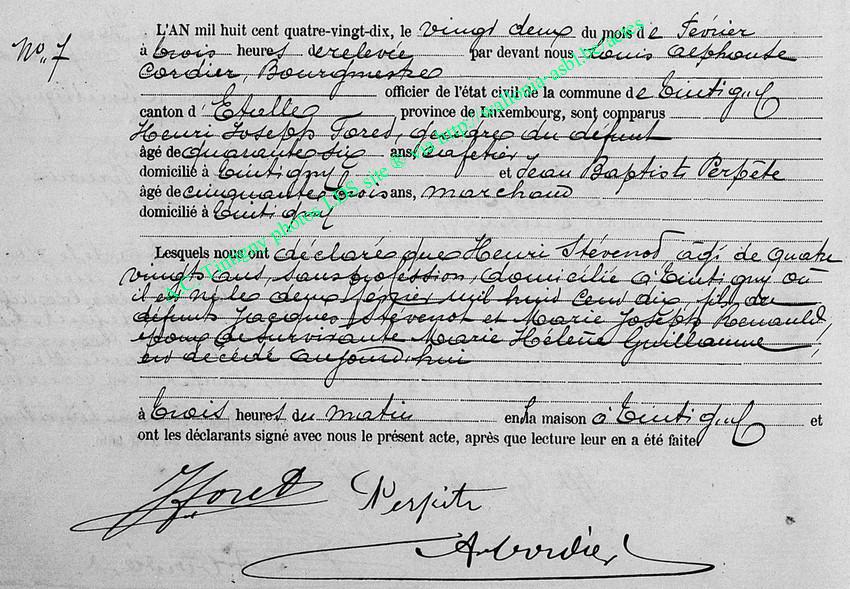 No. 7
L'AN mil huit cent quatre-vingt-dix, le vingt deux du mois de Février
à trois heures de relevée par devant nous Louis Alphonse
Cordier, Bourgmestre
officier de l'état civil de la commune de Tintigny
canton d'Etalle province de Luxembourg, sont comparus
Henri Joseph Foret, gendre du défunt
âgé de quarante six ans cafetier
domicilié à Tintigny et Jean Baptiste Perpète
âgé de cinquante trois ans, marchand
domicilié à Tintigny
Lesquels nous ont déclaré que Henri Stévenot âgé de quatre
vingts ans, sans profession, domicilié à Tintigny où
il est né le deux février mil huit cent dix, fils de
défunts Jacques Stévenot et Marie Joseph Renauld,
époux de survivante Marie Hélène Guillaume,
est décédé aujourd'hui
à trois heures du matin en la maison à Tintigny et
ont les déclarants signé avec nous le présent acte, après que lecture leur en a été faite
HForet Perpète
A Cordier
A.C. Tintigny photos LDS site ® via http://wallonia-asbl.be actes